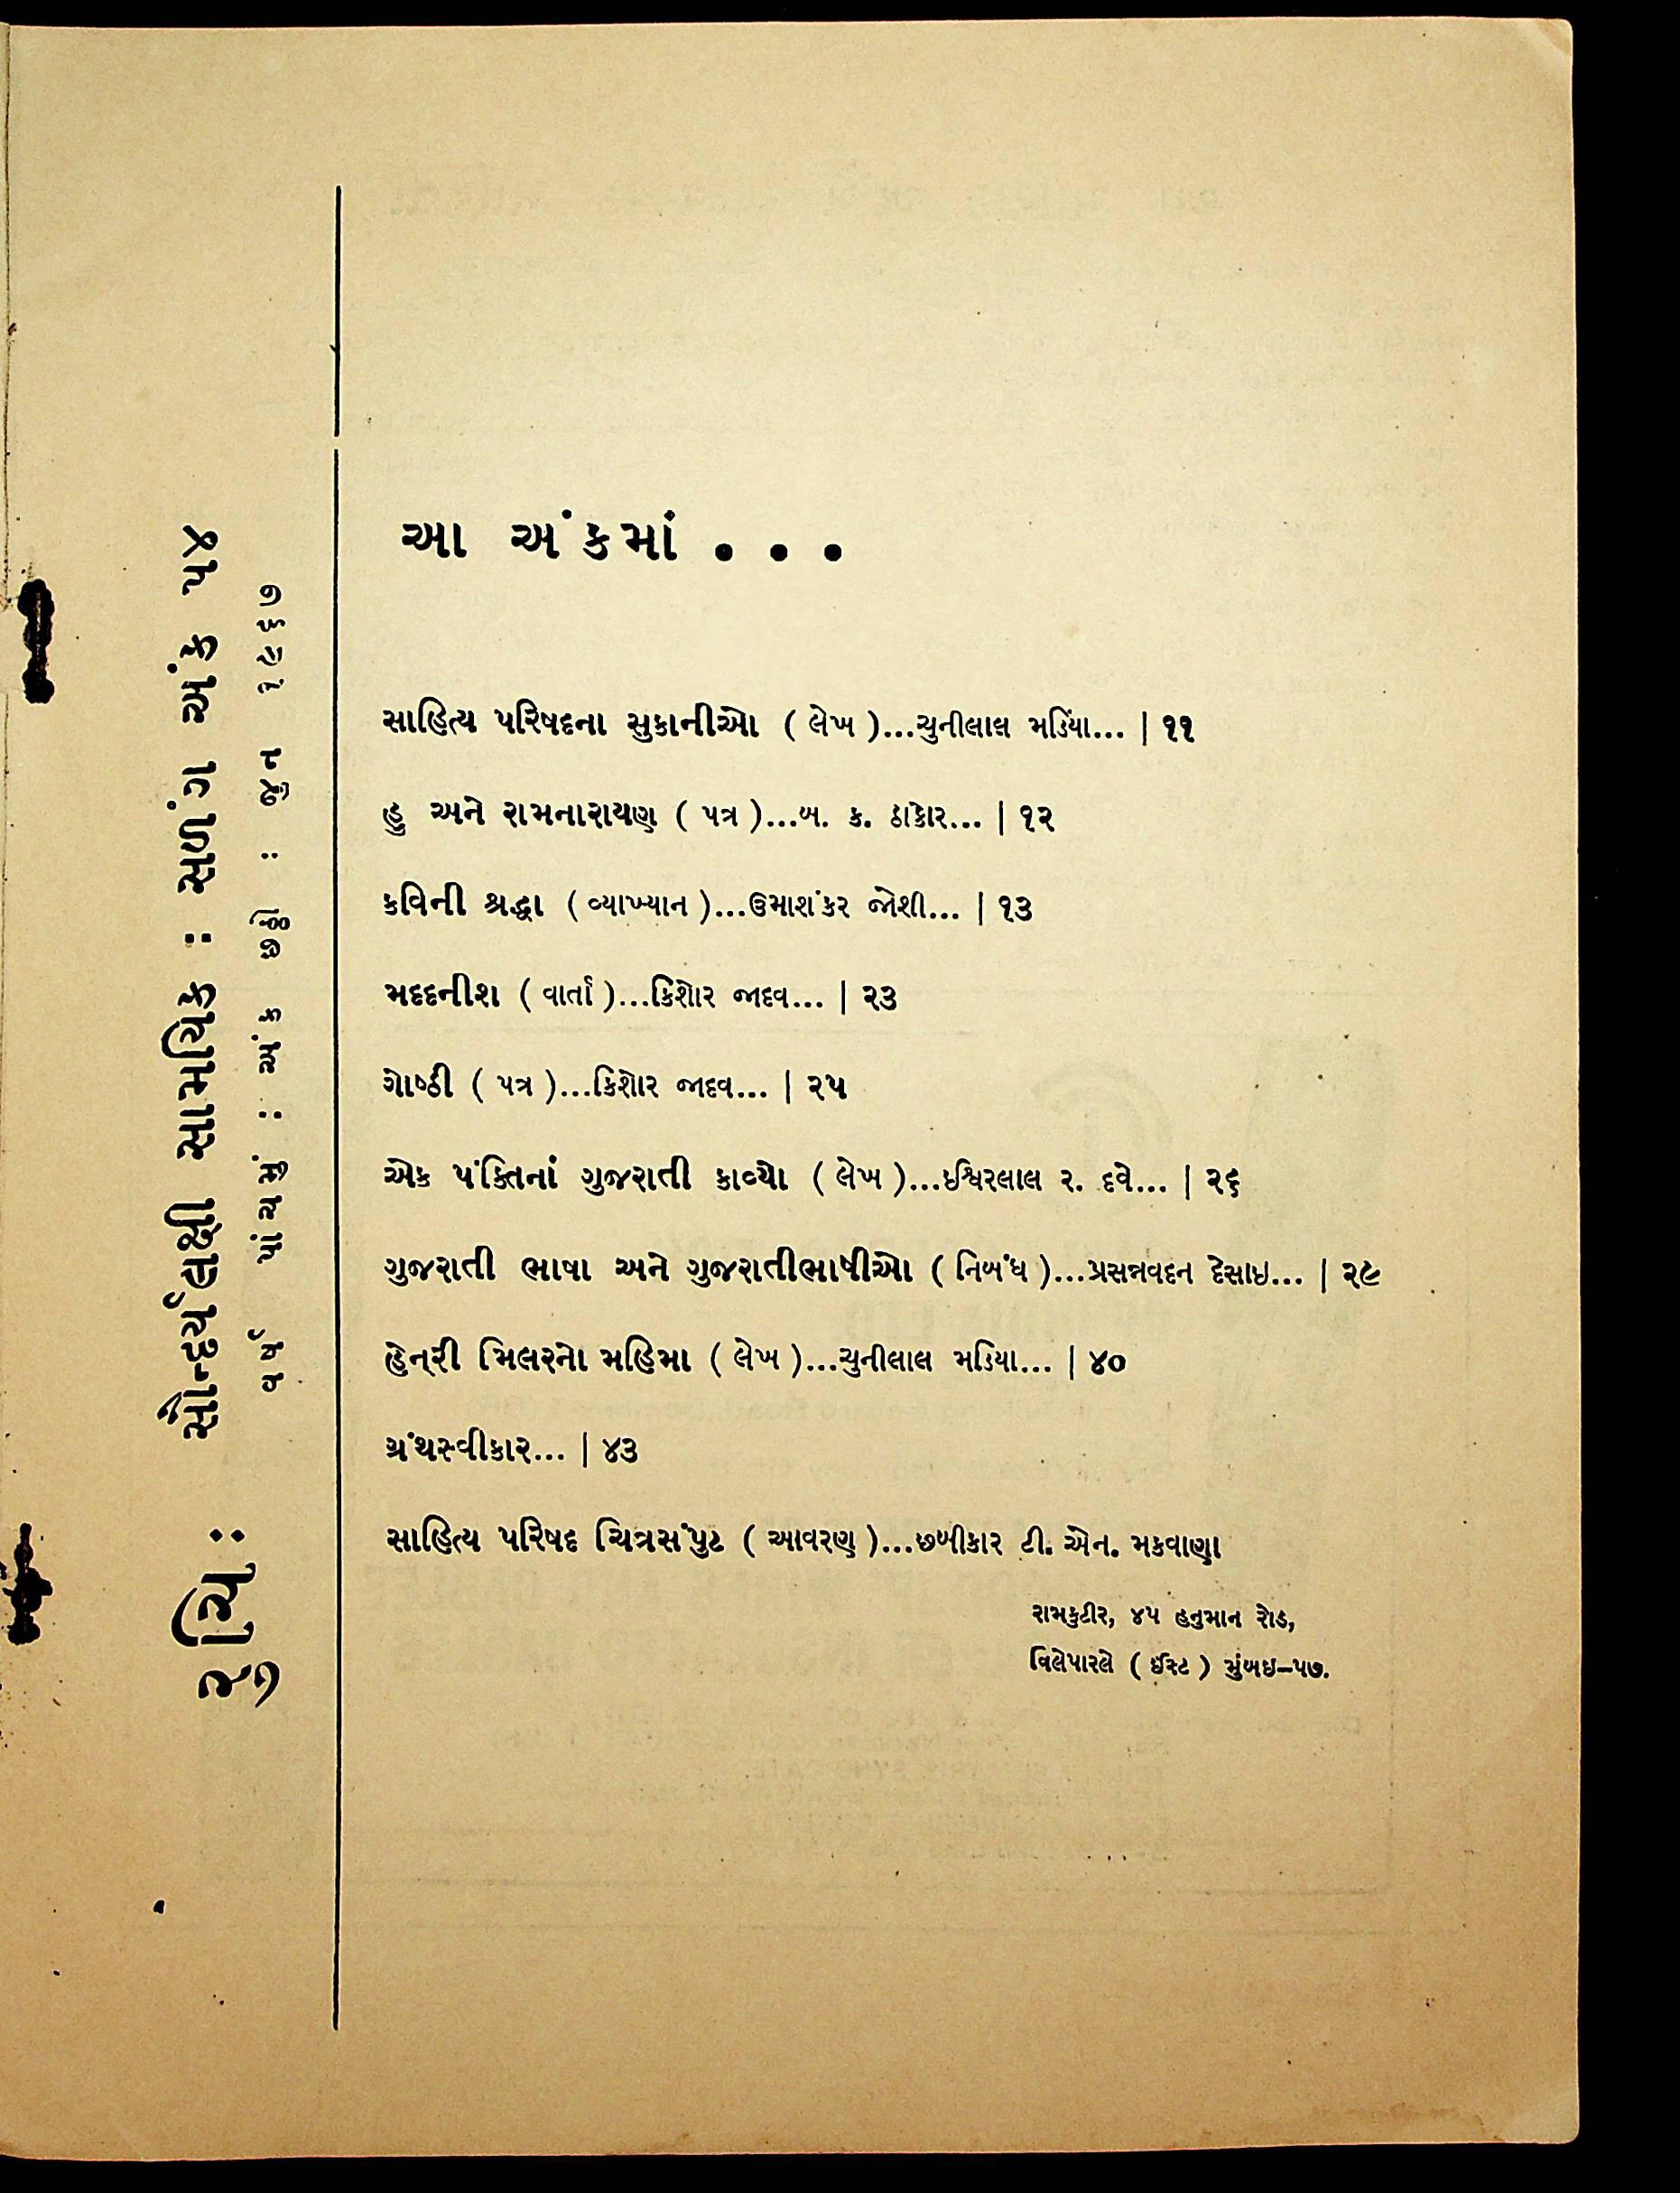 રુચિ : સૌન્દર્યલક્ષી સામયિક : સળંગ અંક ૫૪
વર્ષ પાંચમું : અંક છઠ્ઠો : જુન ૧૯૬૭
આ અંકમાં . . .
સાહિત્ય પરિષદના સુકાનીઓ ( લેખ )...ચુનીલાલ મડિયા... | ૧૧
હુ અને રામનારાયણ ( પત્ર )...બ. ક. ઠાકોર... | ૧૨
કવિની શ્રદ્ધા ( વ્યાખ્યાન )...ઉમાશંકર જોશી... | ૧૩
મદદનીશ ( વાર્તા )...કિશોર જાદવ... | ૨૩
ગોષ્ઠી ( પત્ર )...કિશોર જાદવ... | ૨૫
એક પંક્તિનાં ગુજરાતી કાવ્યો ( લેખ )...ઇશ્વિરલાલ ર. દવે... | ૨૬
ગુજરાતી ભાષા અને ગુજરાતીભાષીઓ ( નિબંધ )...પ્રસન્નવદન દેસાઇ... | ૨૯
હેન્‌રી મિલરનો મહિમા ( લેખ )...ચુનીલાલ મડિયા... | ૪૦
ગ્રંથસ્વીકાર... | ૪૩
સાહિત્ય પરિષદ ચિત્રસંપુટ ( આવરણ )...છબીકાર ટી. એન. મકવાણા
રામકુટીર, ૪૫ હનુમાન રોડ,
વિલેપારલે ( ઈસ્ટ ) મુંબઇ–૫૭.